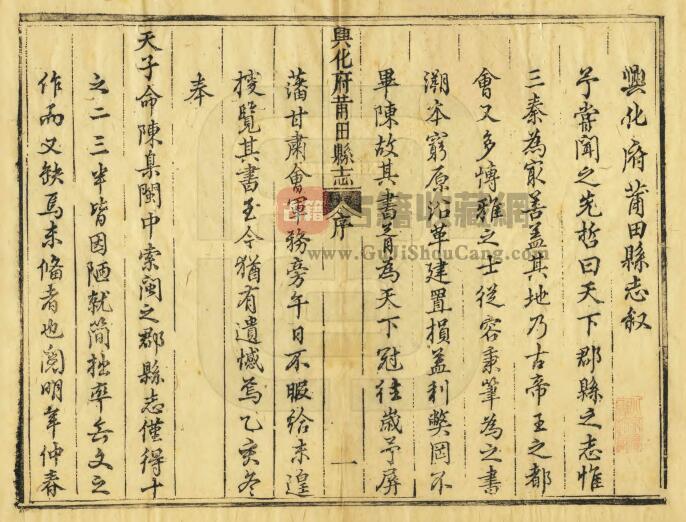 興化府莆田縣志叙
予嘗聞之先哲曰天下郡縣之志惟
三秦為最善葢其地乃古帝王之都
會又多博雅之士從容秉筆為之書
溯本窮原沿革建置損益利獘罔不
畢陳故其書肯為天下冠徃歲予屏
興化府莆田縣志
序
一
藩甘肅會軍務旁午日不暇給未遑
披覽其書至今猶有遺憾焉乙亥冬
奉
天子命陳臬閩中索閩之郡縣志僅得十
之二三半皆因陋就簡拙率無文之
作而又缺焉未脩者也閱明年仲春
古籍
古籍收藏網
www.GuJiShouCang.com